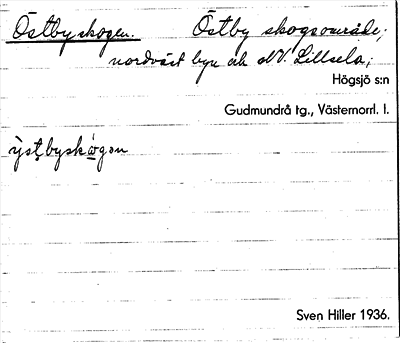 Östbyskogen. Östby skogsområde;
nordväst byn och NV. Lillsela;
Högsjö s:n
Gudmundrå tg., Västernorrl. l.
ỳstbyskògen
Sven Hiller 1936.